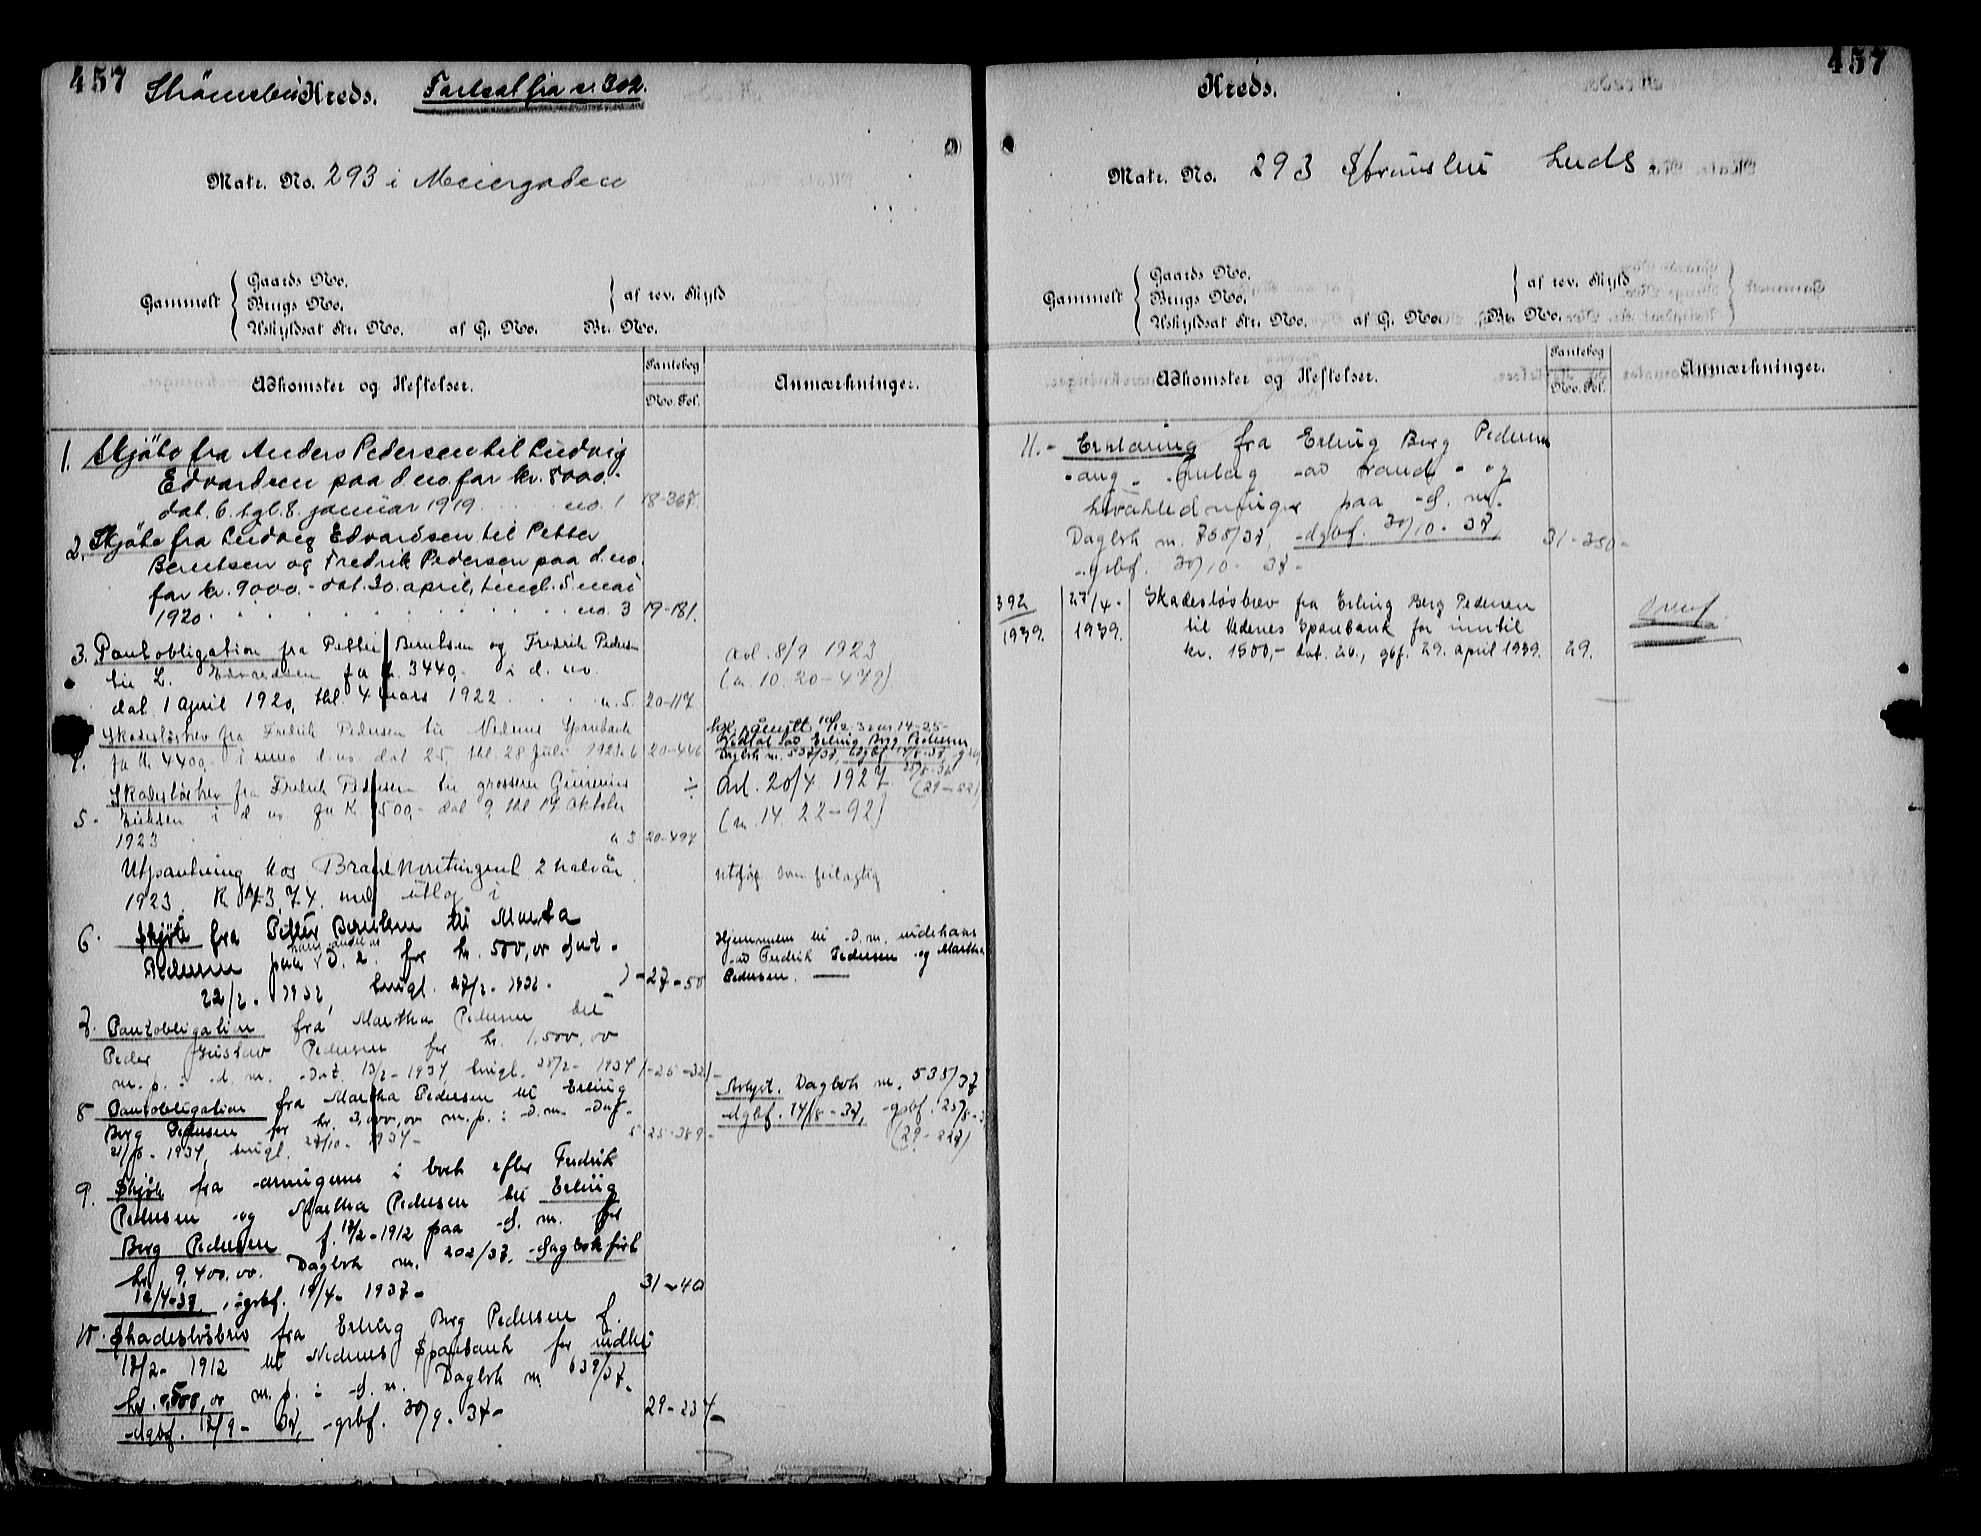 457
Strømsbu Kreds. Fortsat fra s. 302.
Matr. No. 293 i Meiergaden
Gammelt
Gaards No.
Brugs No.
Uskyldsat Str. No. af G. No. Br. No.
af rev. Skyld
Adkomster og Heftelser.
Pantebog
No. Fol.
Anmærkninger.
1. Skjöte fra Anders Pedersen til Ludvig
Edvardsen paa d no for kr. 8000.-
dat. 6. tgl. 8. januar 1919 no. 1 18-367.
2. Skjöte fra Ludvig Edvardsen til Petter
Berntsen og Fredrik Pedersen paa d. no.
for kr. 9000.- dat. 30. april, tingl. 5. mai
1920 no. 3 19-181.
3. Pantobligation fra Petter Berntsen og Fredrik Pedersen
til L. Edvardsen for k. 3440,- i d. no.
dat 1 April 1920, thl. 4 mars 1922 n. 5. 20-117
avl. 8/9 1923
(n. 10. 20-478)
4. Skadesløsbrev fra Fredrik Pedersen til Nedenes Sparebank
for kr 4400,- i d. no dat 25, thl. 28 juli 1923 n 6 20-446
Vedtat av Erling Berg Pedersen
Dagbok nr. 537/37, dgbf. 14/8-37,
(29-22)
5. Skadesløsbrev fra Fredrik Pedersen til grosserer Gunnius
Eriksen i d no for K 500,- dat 9, thl 17 Oktober
1923 n 3 20-497
÷
Avl. 20/4 1927
(nr. 14. 22-92)
Utpantning hos Brandkontingent 2 halvår
1923. K 43,74 med utlæg i
utgår som feilagtig
6. Skjöte fra Petter Berntsen til Marta
Pedersen paa hans andel av d. n. for kr. 500,00 dat.
22/2. 1932, tingl. 27/2. 1932. 27-50
Hjemmelen til d. nr. indehaes
av Fredrik Pedersen og Martha
Pedersen.
7. Pantobligation fra Martha Pedersen til
Peder Gustav Pedersen for kr. 1,500,00
m. p. i d. nr. Dat. 13/2-1934, tingl. 28/2-1934 1-25-321-
8 Pantobligation fra Martha Pedersen til Erling
Berg Pedersen for kr. 3,000,00 m. p. i d. nr. Dat.
1934, tingl. 27/10-1934- 5-25-389-
Avlyst. Dagbok nr. 538/37
dgbf. 14/8-37, gbf. 25/8-3
(29-227)
9. Skjöte fra arvingerne i boet efter Fredrik
Pedersen og Martha Pedersen til Erling
Berg Pedersen f. 18/2-1912 paa d. nr. for
kr. 9,400.00. Dagbok nr. 202/37. dagbokført
12/4-37, grbf. 19/4-1937- 31-40
10. Skadesløsbrev fra Erling Berg Pedersen f.
18/2-1912 til Nedenes Sparebank for indtil
kr. m. p. i d. nr. Dagbok nr. 639/37.
dgbf. 12/9-37, grbf. 30/9-37- 29-237-
457
Kreds.
Matr. No. 293 Strømsbu kreds.
Gammelt
Gaards No.
Brugs No.
Uskyldsat Str. No. af G. No. Br. No.
af rev. Skyld
Adkomster og Heftelser.
Pantebog
No. Fol.
Anmærkninger.
11.- Erklæring fra Erling Berg Pedersen
ang. anlæg av vand- og
kloakledninger paa d. nr.
Dagbok nr. 768/37, dgbf. 30/10-37,
grbf. 30/10-37- 31-350-
392/1939. 27/4-1939. Skadesløsbrev fra Erling Berg Pedersen
til Nedenes Sparebank for inntil
kr. 1500,- dat. 26., gbf. 29. april 1939. 29.